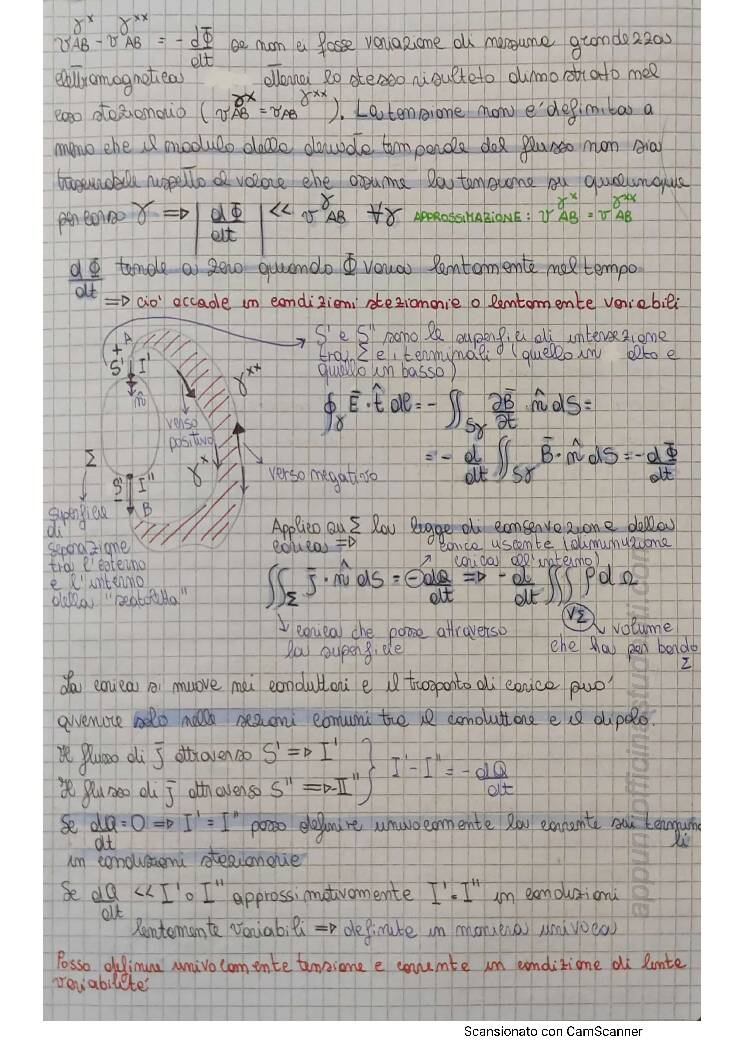 v_AB^γ* - v_AB^γ** = - dΦ/dt se non ci fosse variazione di nessuna grandezza
elettromagnetica otterrei lo stesso risultato dimostrato nel
caso stazionario (v_AB^γ* = v_AB^γ**). La tensione non è definita a
meno che il modulo della derivata temporale del flusso non sia
trascurabile rispetto al valore che assume la tensione su qualunque
percorso γ => |dΦ/dt| << v_AB^γ ∀γ APPROSSIMAZIONE: v_AB^γ* = v_AB^γ**
dΦ/dt tende a zero quando Φ varia lentamente nel tempo
=> ciò accade in condizioni stazionarie o lentamente variabili
A
+
S' I'
n̂
verso
positivo
γ**
γ*
Σ
S" I"
B
verso negativo
superficie
di
separazione
tra l'esterno
e l'interno
della "scatoletta"
S' e S" sono le superfici di intersezione
tra Σ e i terminali (quello in alto e
quello in basso)
∮_γ Ē · t̂ dl = - ∬_Sγ ∂B̄/∂t · n̂ dS =
= - d/dt ∬_Sγ B̄ · n̂ dS = - dΦ/dt
Applico su Σ la legge di conservazione della
carica =>
carica uscente (diminuzione
carica all'interno)
∬_Σ J̄ · n̂ dS = - dQ/dt => - d/dt ∭_VΣ ρ dΩ
carica che passa attraverso
la superficie
volume
che ha per bordo
Σ
La carica si muove nei conduttori e il trasporto di carica può
avvenire solo nelle sezioni comuni tra il conduttore e il dipolo.
Il flusso di J̄ attraverso S' => I'
Il flusso di J̄ attraverso S" => -I"
} I' - I" = - dQ/dt
Se dQ/dt = 0 => I' = I" posso definire univocamente la corrente sui terminali
in condizioni stazionarie
Se dQ/dt << I' o I" approssimativamente I' = I" in condizioni
lentamente variabili => definite in maniera univoca
Posso definire univocamente tensione e corrente in condizione di lenta
variabilità
appuntiofficinastudenti.com
Scansionato con CamScanner